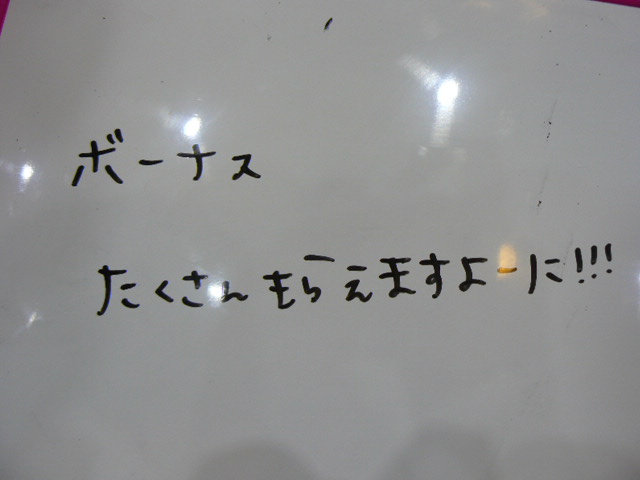 ボーナス
たくさんもらえますよーに!!!